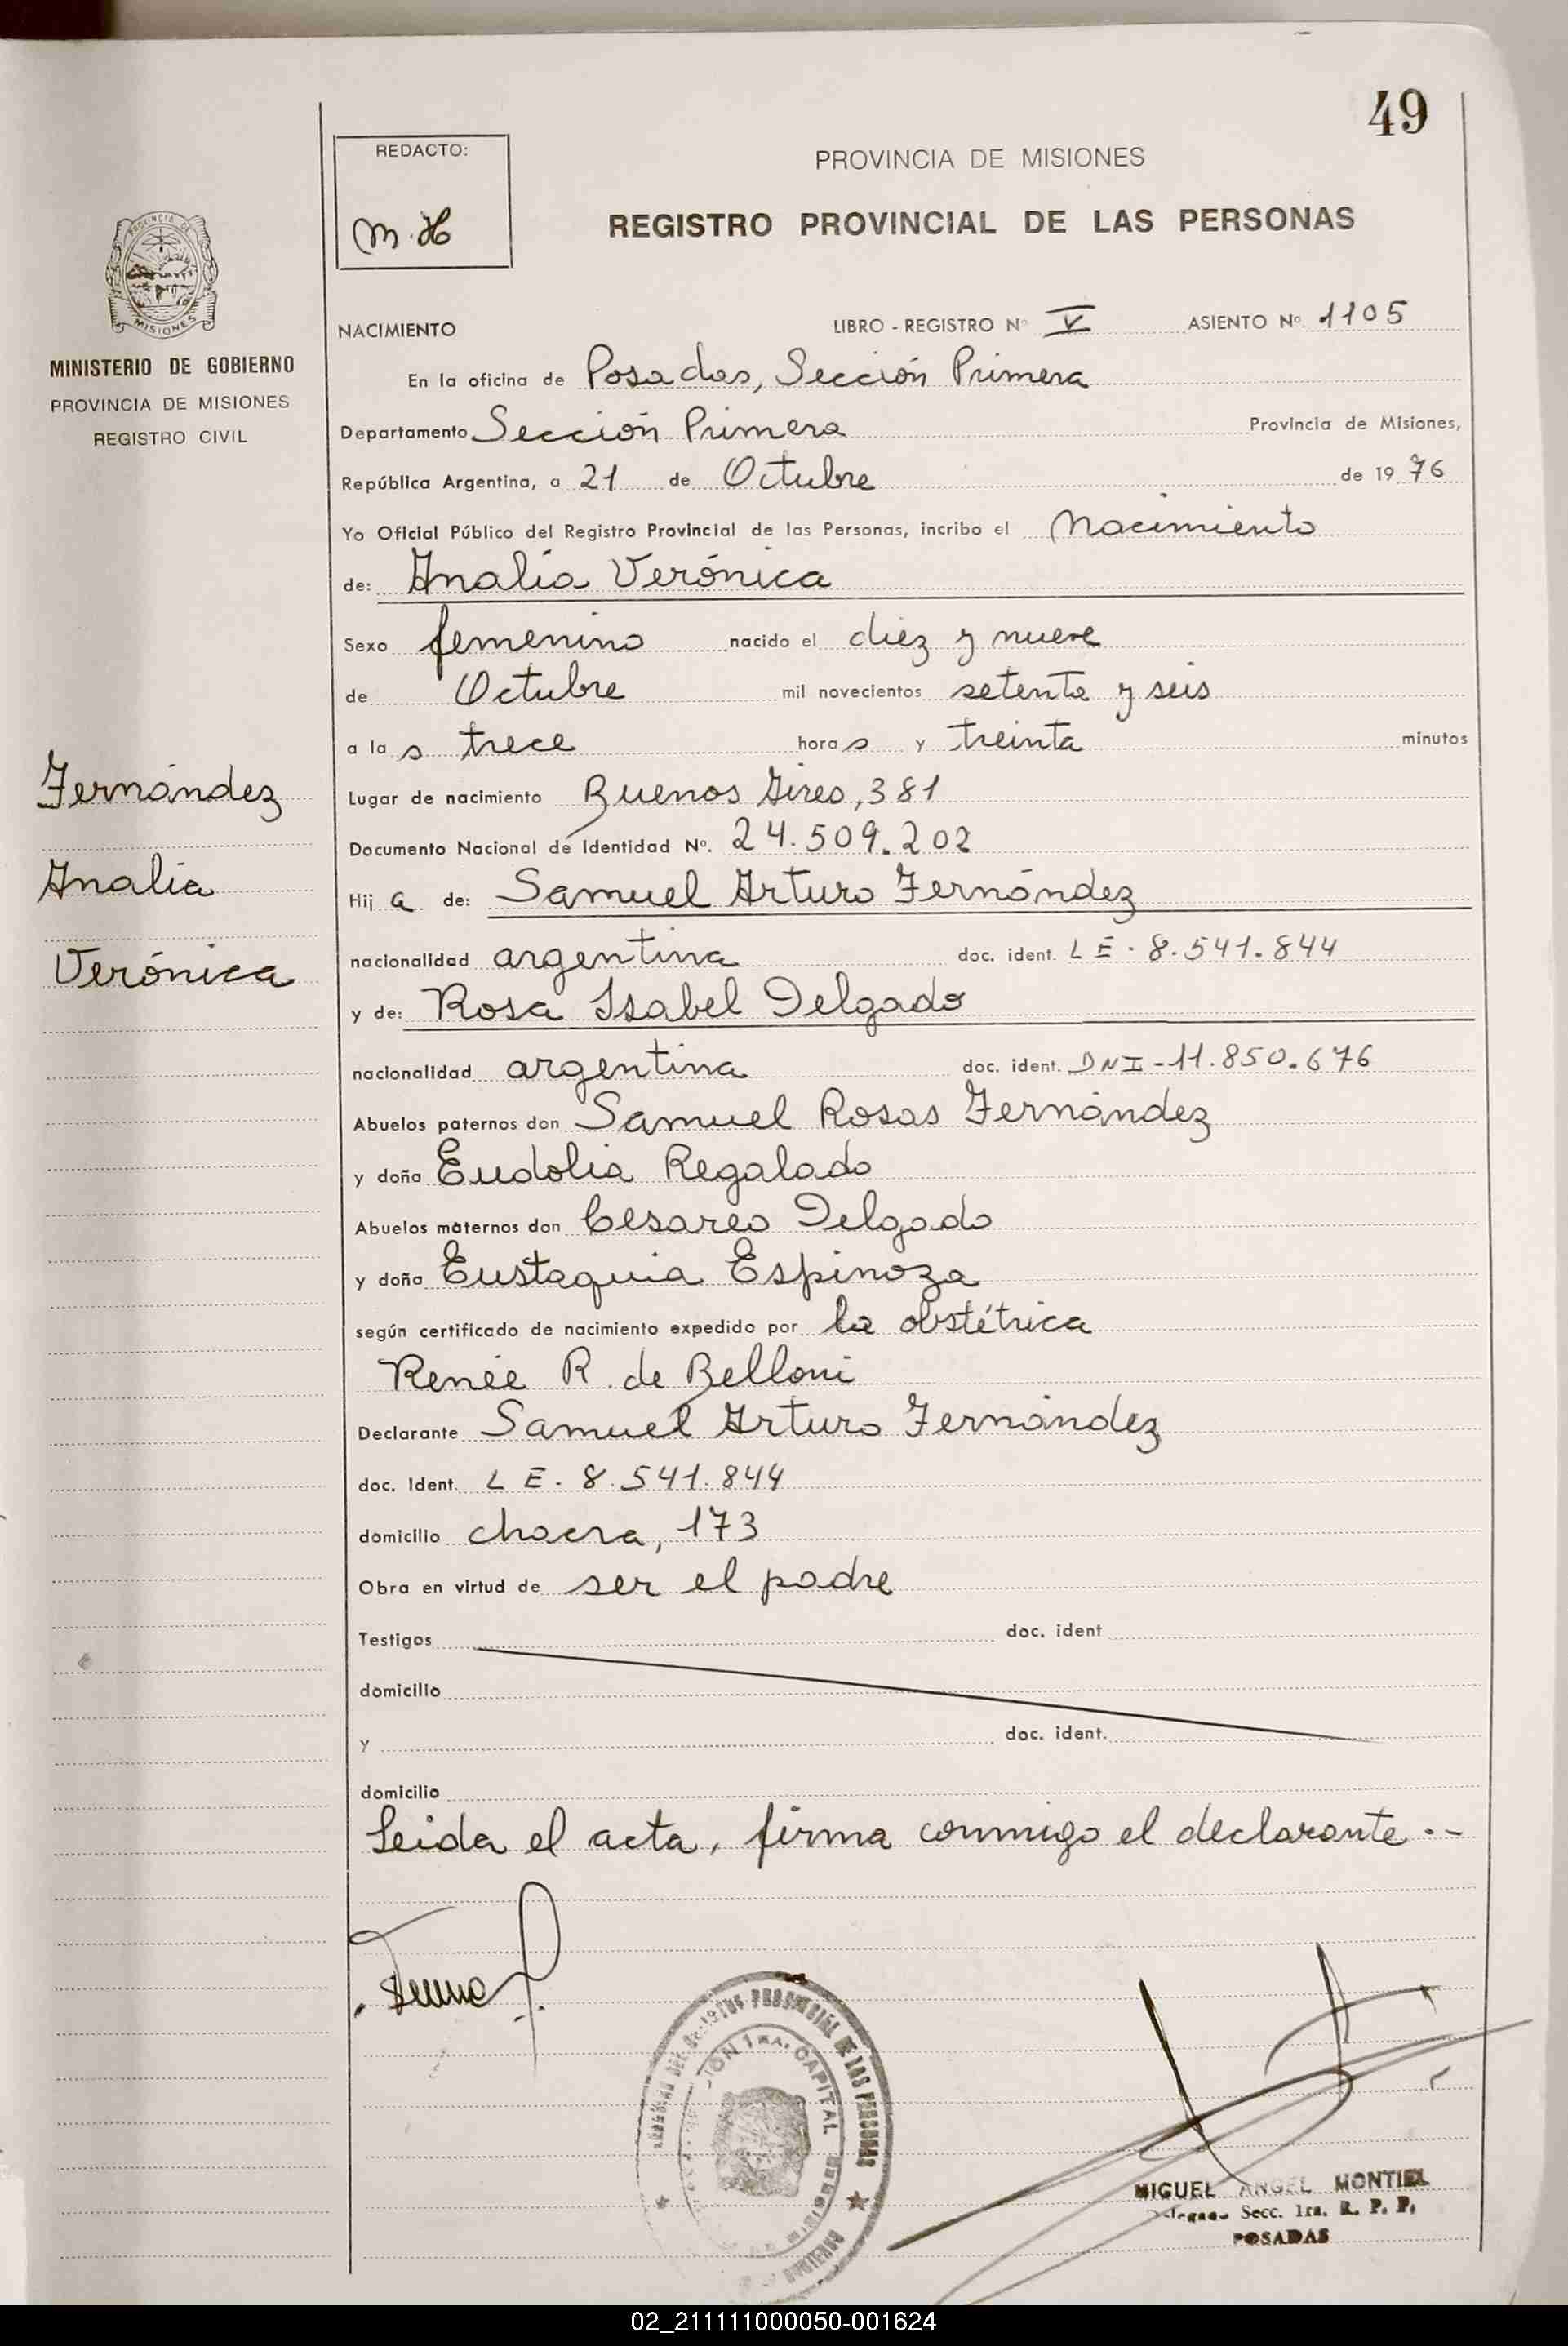 49
REDACTO:
M.H
PROVINCIA DE MISIONES
REGISTRO PROVINCIAL DE LAS PERSONAS
PROVINCIA DE
MISIONES
MINISTERIO DE GOBIERNO
PROVINCIA DE MISIONES
REGISTRO CIVIL
NACIMIENTO LIBRO - REGISTRO Nº V ASIENTO Nº 1105
En la oficina de Posadas, Sección Primera
Departamento Sección Primera Provincia de Misiones,
República Argentina, a 21 de Octubre de 1976
Yo Oficial Público del Registro Provincial de las Personas, incribo el Nacimiento
de: Analía Verónica
Sexo femenino nacido el diez y nueve
de Octubre mil novecientos setenta y seis
a las trece horas y treinta minutos
Fernández
Analía
Verónica
Lugar de nacimiento Buenos Aires, 381
Documento Nacional de Identidad Nº. 24.509.202
Hija de: Samuel Arturo Fernández
nacionalidad argentina doc. ident. LE - 8.541.844
y de: Rosa Isabel Delgado
nacionalidad argentina doc. ident. DNI - 11.850.676
Abuelos paternos don Samuel Rosas Fernández
y doña Eudolia Regalado
Abuelos maternos don Cesareo Delgado
y doña Eustaquia Espinoza
según certificado de nacimiento expedido por la obstétrica
Renée R. de Belloni
Declarante Samuel Arturo Fernández
doc. Ident. LE - 8.541.844
domicilio chacra, 173
Obra en virtud de ser el padre
Testigos doc. ident
domicilio
y doc. ident.
domicilio
Leida el acta, firma conmigo el declarante.-
PROVINCIAL DE LAS PERSONAS
1ra. CAPITAL
MIGUEL ANGEL MONTIEL
Secc. 1ra. R. P. P.
POSADAS
02_211111000050-001624